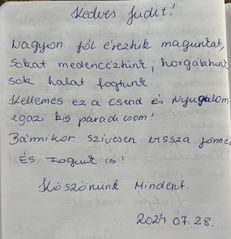 Kedves Judit!
Nagyon jól éreztük magunkat,
Sokat medencéztünk, horgásztunk
sok halat fogtunk.
Kellemes ez a csend és nyugalom
igazi kis paradicsom!
Bármikor szívesen vissza jönnénk
És fogunk is!
Köszönünk Mindent.
2024 07.28.